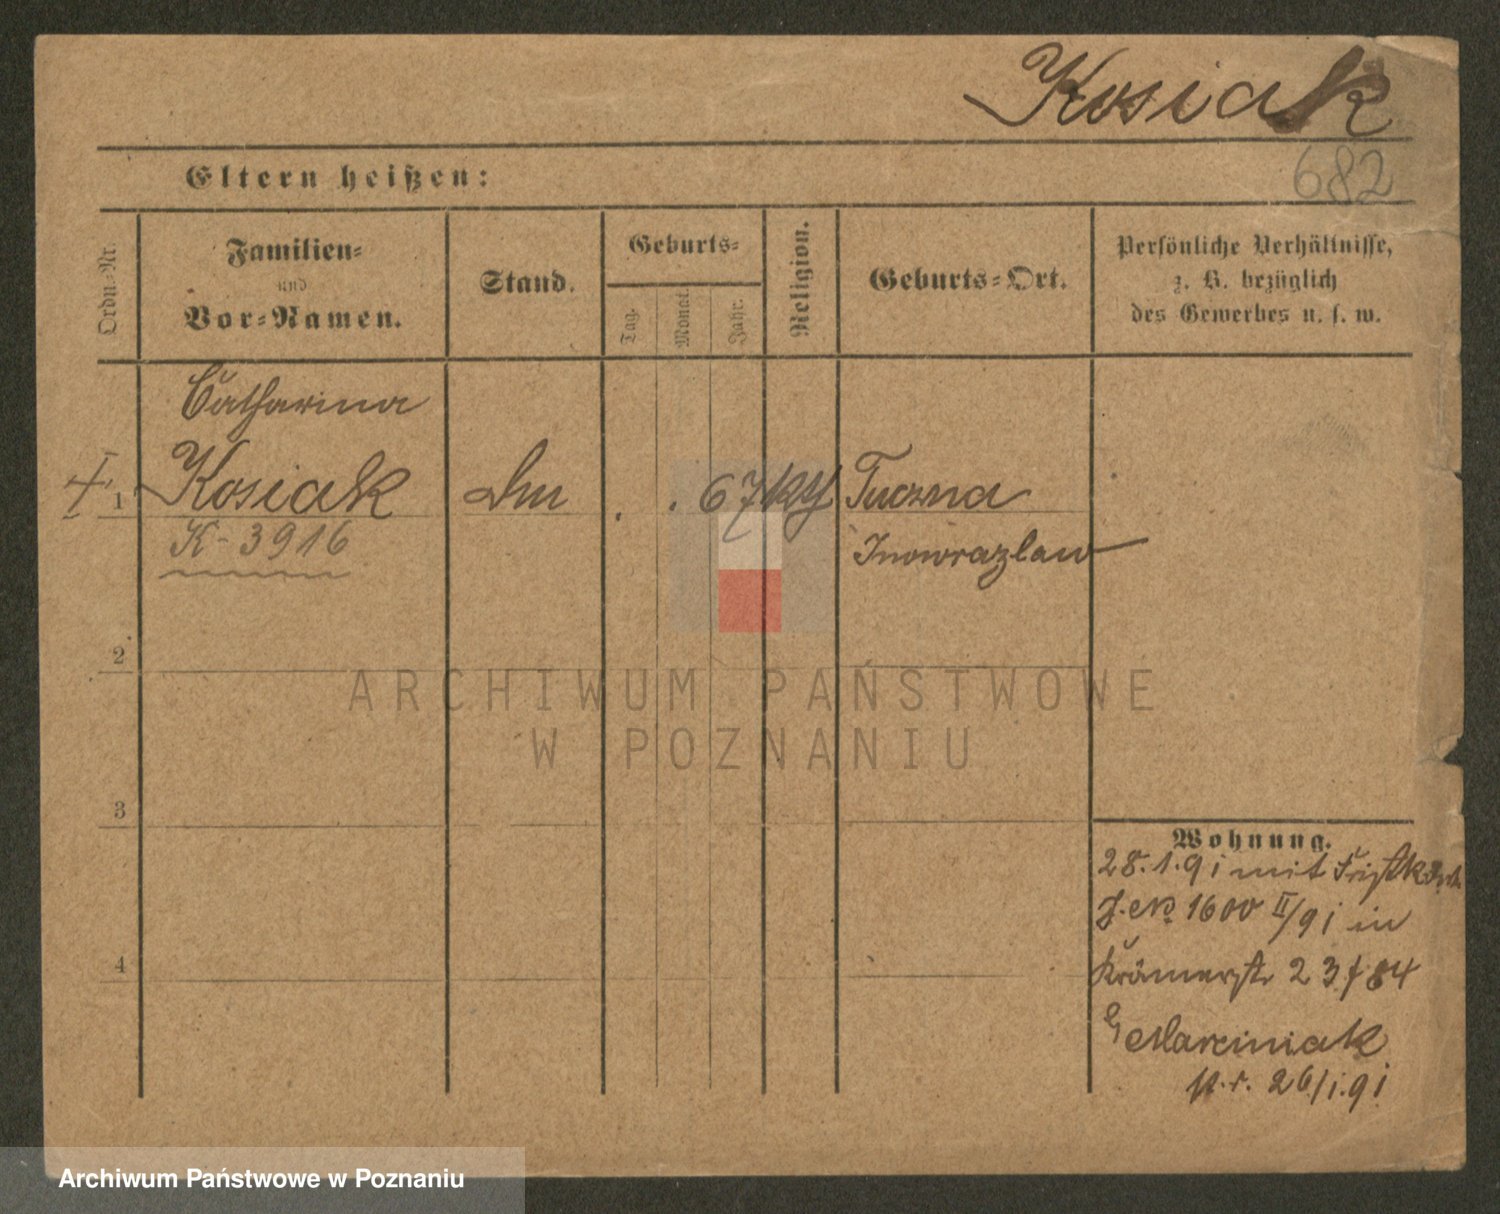 Kosiak
682
Eltern heißen:
Ordn.-Nr.
Familien-
und
Vor-Namen.
Stand.
Geburts-
Tag.
Monat.
Jahr.
Religion.
Geburts-Ort.
Persönliche Verhältnisse,
z. B. bezüglich
des Gewerbes u. s. w.
Catharina
1 Kosiak . . 67 Tuczna
K-3916
Inowrazlaw
2
ARCHIWUM PAŃSTWOWE
W POZNANIU
3
Wohnung.
28.1.91 mit
J. No 1600 II/91 in
Krämerstr 23
b/ Marciniak
26/1.91
4
Archiwum Państwowe w Poznaniu